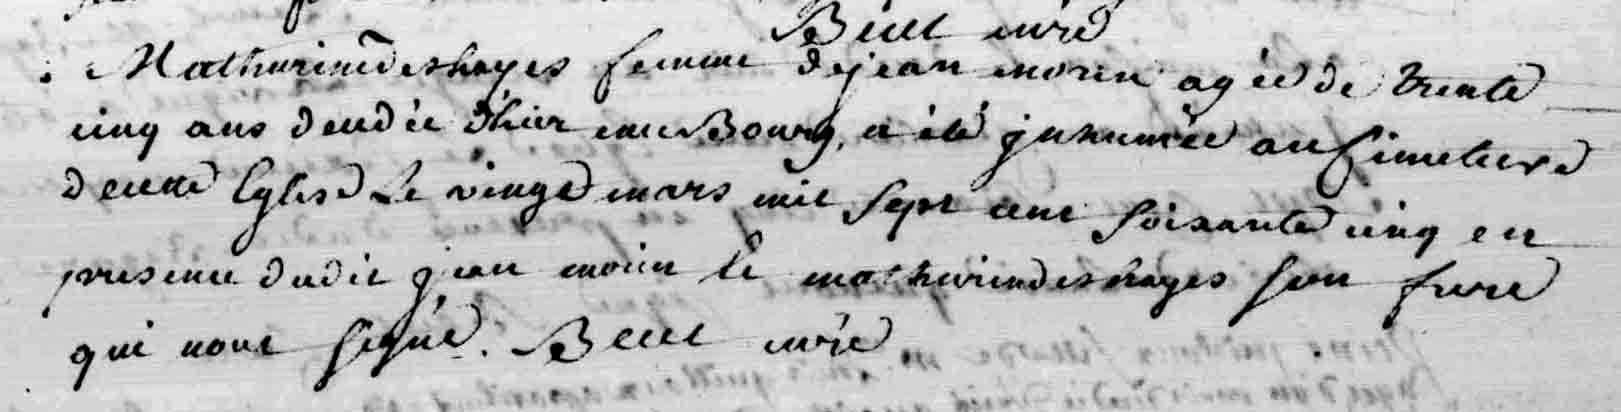 Becel curé
Mathurine deshayes femme de jean morin agée de trente
cinq ans decedée d'hier en ce Bourg, a été jnhumée au Simetiere
de cette Eglise Le vingt mars mil sept cent soixante cinq en
presence dudit jean morin et mathurin deshayes son frere
qui n'ont signé. Becel curé